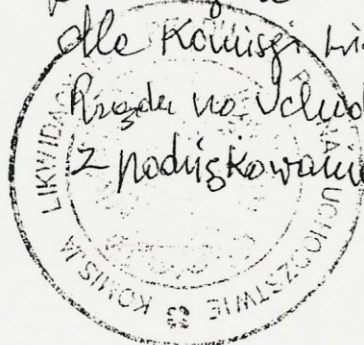 dla Komisji
Rządu na Uchodź
z podziękowaniem
KOMISJA LIKWIDAC NA UCHODZSTWIE